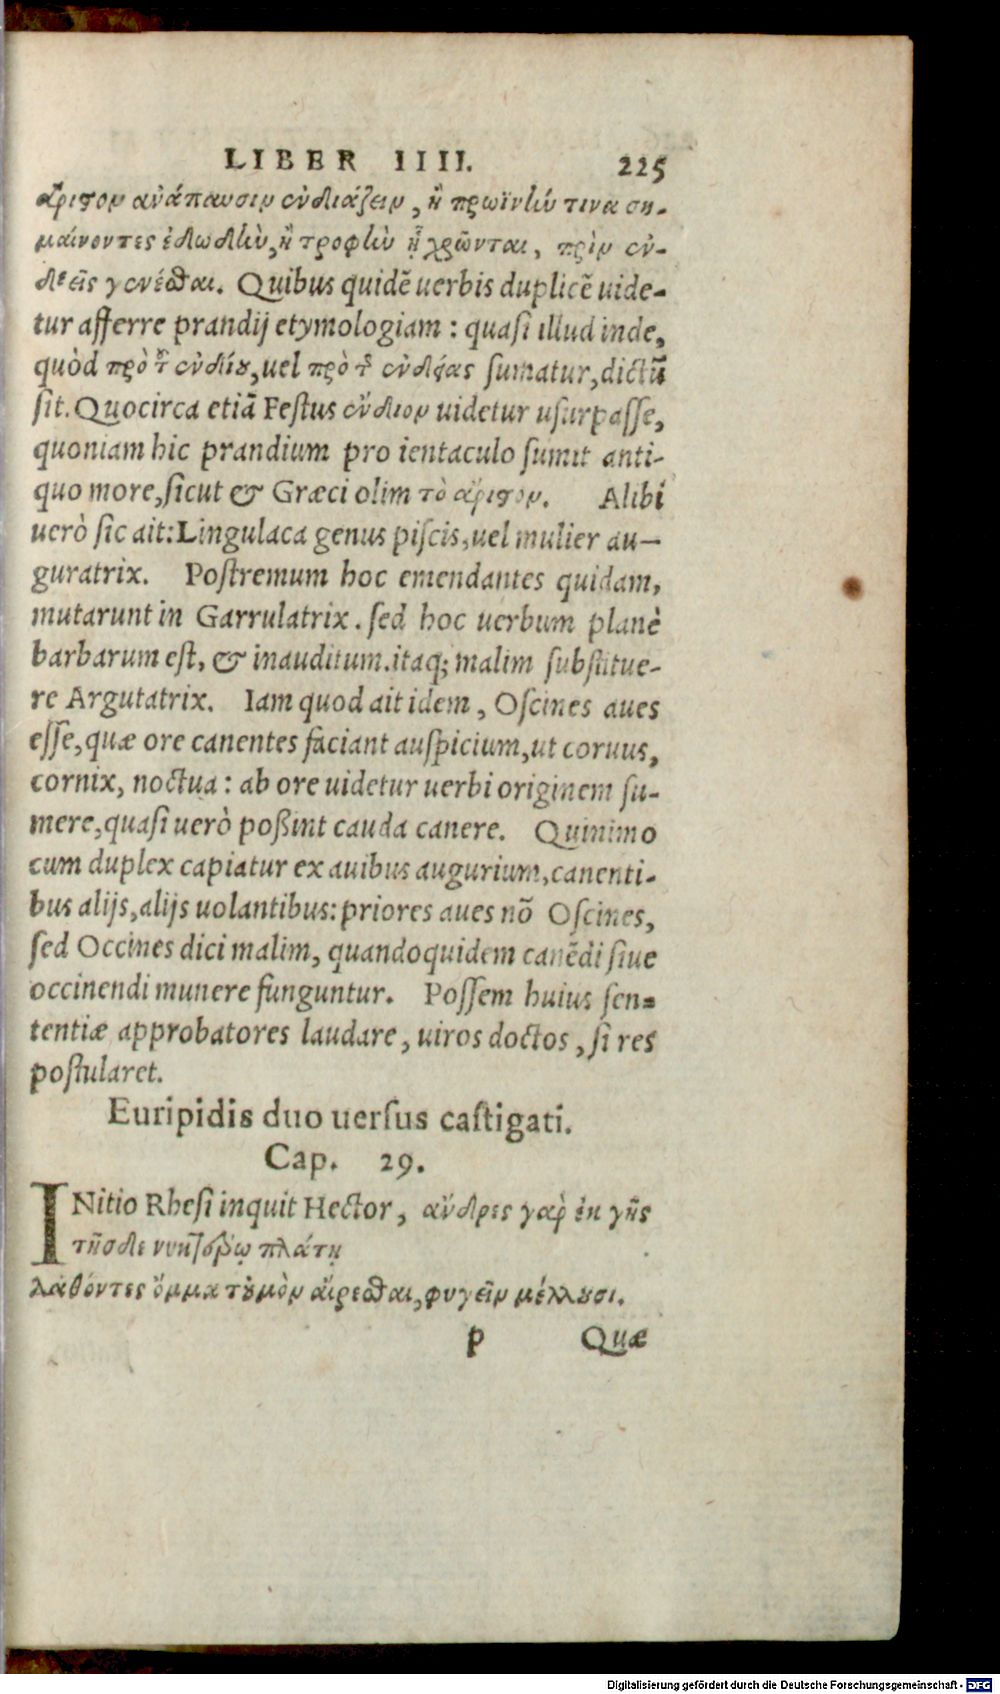 LIBER IIII. 225
ἄριστον ἀνάπαυσιν ἐνδιάζειν, ἢ πρωϊνήν τινα ση-
μαίνοντες ἐδωδὴν, ἢ τροφὴν ᾗ χρῶνται, πρὶν ἐν-
δεεῖς γενέσθαι. Quibus quidē uerbis duplicē uide-
tur afferre prandij etymologiam : quasi illud inde,
quòd πρὸ τ͂ ἐνδίου, uel πρὸ τ͂ ἐνδείας sumatur, dictū
sit. Quocirca etiā Festus ἔνδιον uidetur usurpasse,
quoniam hic prandium pro ientaculo sumit anti-
quo more, sicut & Græci olim τὸ ἄριστον. Alibi
uerò sic ait: Lingulaca genus piscis, uel mulier au-
guratrix. Postremum hoc emendantes quidam,
mutarunt in Garrulatrix. sed hoc uerbum planè
barbarum est, & inauditum. itaq; malim substitue-
re Argutatrix. Iam quod ait idem, Oscines aues
esse, quæ ore canentes faciant auspicium, ut coruus,
cornix, noctua : ab ore uidetur uerbi originem su-
mere, quasi uerò poßint cauda canere. Quinimo
cum duplex capiatur ex auibus augurium, canenti-
bus alijs, alijs uolantibus: priores aues nō Oscines,
sed Occines dici malim, quandoquidem canēdi siue
occinendi munere funguntur. Possem huius sen-
tentiæ approbatores laudare, uiros doctos, si res
postularet.
Euripidis duo uersus castigati.
Cap. 29.
INitio Rhesi inquit Hector, ἄνδρες γὰρ ἐκ γῆς
τῆσδε νυκτέρῳ πλάτῃ
λαθόντες ὄμμα τοὐμὸν αἴρεσθαι, φυγεῖν μέλλουσι.
p Quæ
Digitalisierung gefördert durch die Deutsche Forschungsgemeinschaft - DFG